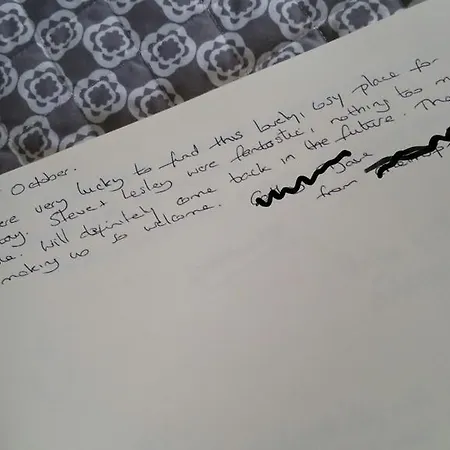 October.
ere very lucky to find this lovely, cosy place for
. Steve + Lesley were fantastic, nothing too m
. Will definitely come back in the future. Tha
making us so welcome. Jane
from